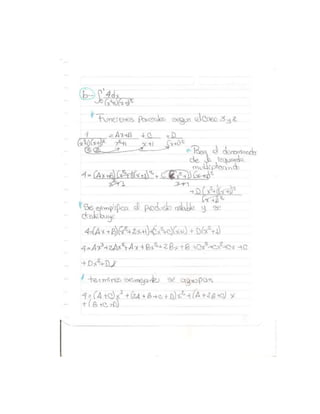 b ∫ 4dx
(x²+1)(x+1)²
Funciones Parciales según el Caso 3 y 2
4 = Ax+B + C + D
(x²+1)(x+1)² x²+1 x+1 (x+1)²
Pasa el denominador
de la izquierda
multiplicando
4=(Ax+B)(x²+1)(x+1)² + C (x²+1)(x+1)²
x²+1 x+1
+ D(x²+1)(x+1)²
(x+1)²
Se simplifica el producto notable y se
distribuye
4=(Ax+B)(x²+2x+1)+(Cx²+C)(x+1) + D(x²+1)
4=Ax³+2Ax²+Ax+Bx²+2Bx+B+Cx³+Cx²+Cx+C
+Dx²+D
terminos semejantes se agrupan
4=(A+C)x³+(2A+B+C+D)x²+(A+2B+C)x
+(B+C+D)